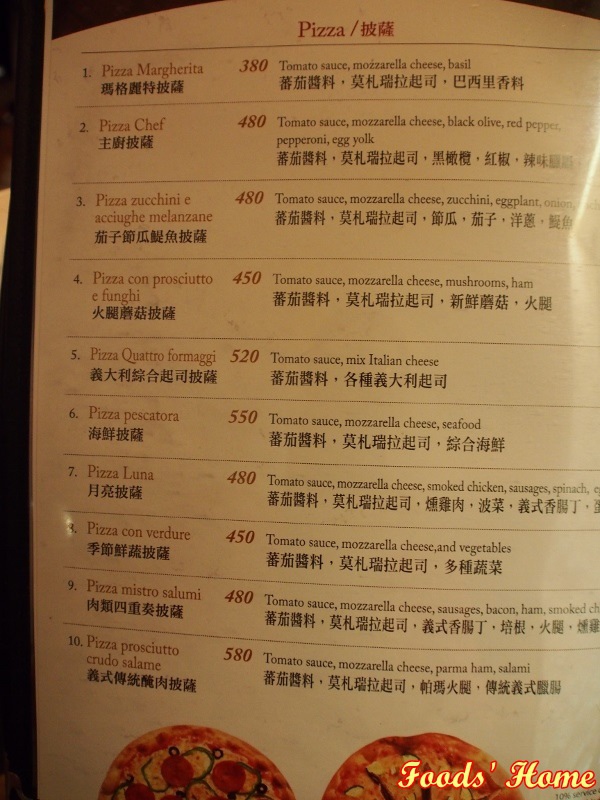 Pizza / 披薩
1. Pizza Margherita 380 Tomato sauce, mozzarella cheese, basil
瑪格麗特披薩 蕃茄醬料，莫札瑞拉起司，巴西里香料
2. Pizza Chef 480 Tomato sauce, mozzarella cheese, black olive, red pepper,
pepperoni, egg yolk
主廚披薩 蕃茄醬料，莫札瑞拉起司，黑橄欖，紅椒，辣味臘腸
3. Pizza zucchini e 480 Tomato sauce, mozzarella cheese, zucchini, eggplant, onion,
acciughe melanzane 蕃茄醬料，莫札瑞拉起司，節瓜，茄子，洋蔥，鯷魚
茄子節瓜鯷魚披薩
4. Pizza con prosciutto 450 Tomato sauce, mozzarella cheese, mushrooms, ham
e funghi 蕃茄醬料，莫札瑞拉起司，新鮮蘑菇，火腿
火腿蘑菇披薩
5. Pizza Quattro formaggi 520 Tomato sauce, mix Italian cheese
義大利綜合起司披薩 蕃茄醬料，各種義大利起司
6. Pizza pescatora 550 Tomato sauce, mozzarella cheese, seafood
海鮮披薩 蕃茄醬料，莫札瑞拉起司，綜合海鮮
7. Pizza Luna 480 Tomato sauce, mozzarella cheese, smoked chicken, sausages, spinach,
月亮披薩 蕃茄醬料，莫札瑞拉起司，燻雞肉，波菜，義式香腸丁，蛋
8. Pizza con verdure 450 Tomato sauce, mozzarella cheese,and vegetables
季節鮮蔬披薩 蕃茄醬料，莫札瑞拉起司，多種蔬菜
9. Pizza mistro salumi 480 Tomato sauce, mozzarella cheese, sausages, bacon, ham, smoked ch
肉類四重奏披薩 蕃茄醬料，莫札瑞拉起司，義式香腸丁，培根，火腿，燻雞
10. Pizza prosciutto 580 Tomato sauce, mozzarella cheese, parma ham, salami
crudo salame 蕃茄醬料，莫札瑞拉起司，帕瑪火腿，傳統義式臘腸
義式傳統醃肉披薩
Foods' Home
10% service